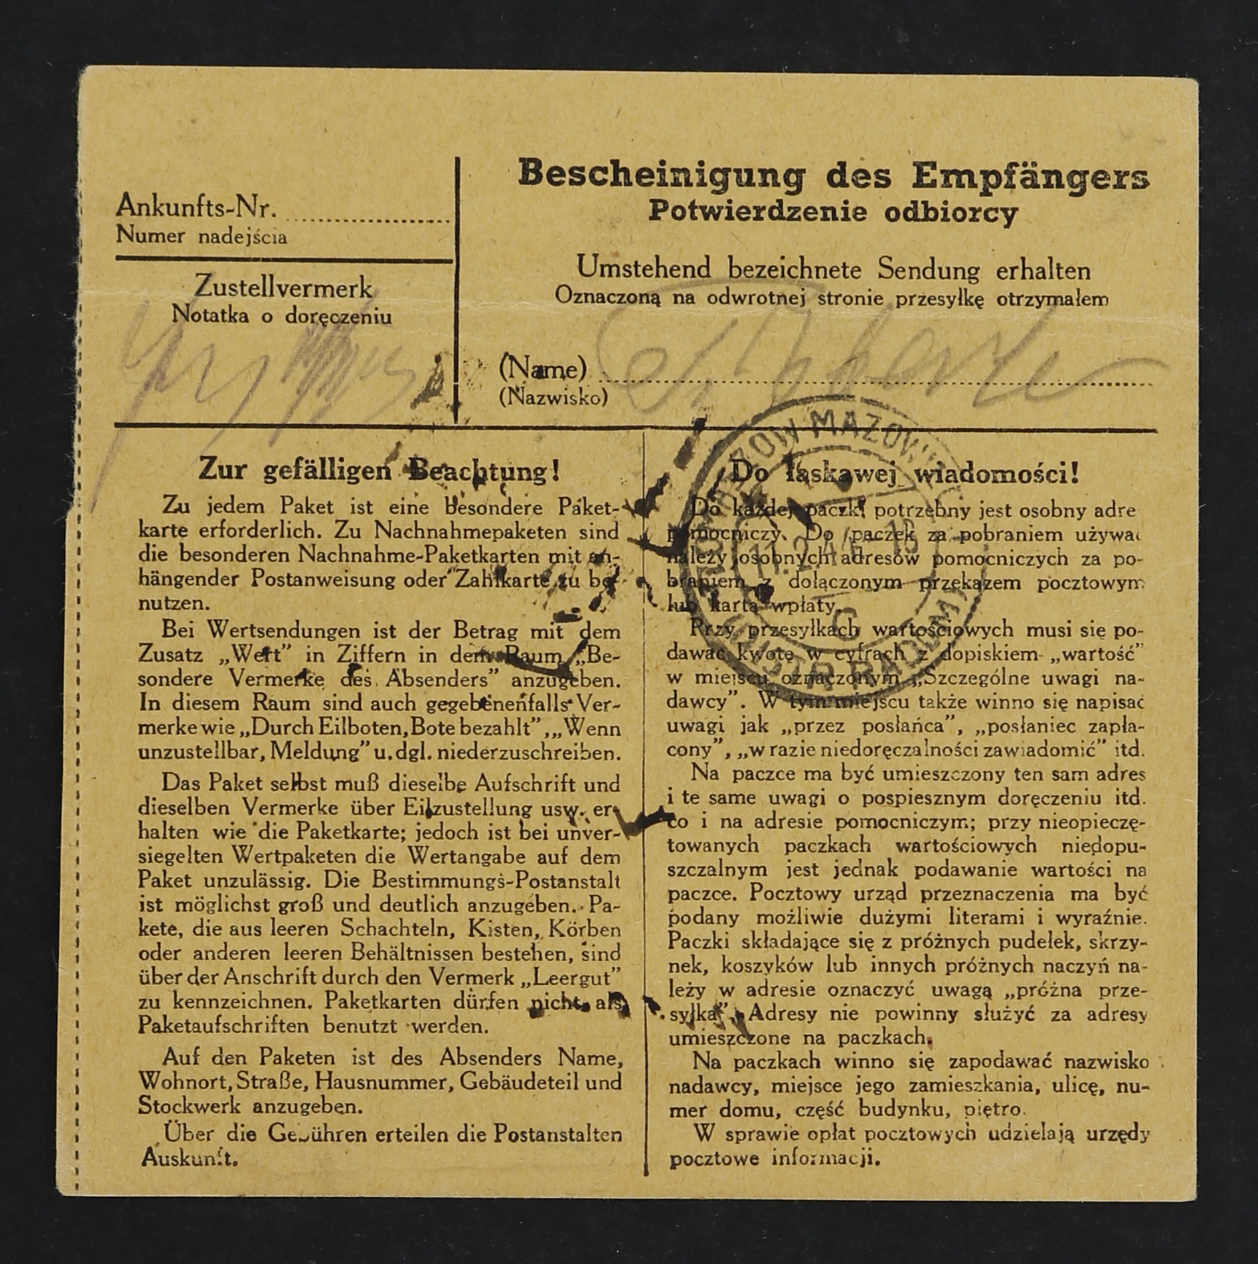 Ankunfts-Nr.
Numer nadejścia
Zustellvermerk
Notatka o doręczeniu
Bescheinigung des Empfängers
Potwierdzenie odbiorcy
Umstehend bezeichnete Sendung erhalten
Oznaczoną na odwrotnej stronie przesyłkę otrzymałem
(Name)
(Nazwisko)
Zur gefälligen Beachtung!
Zu jedem Paket ist eine besondere Paket-
karte erforderlich. Zu Nachnahmepaketen sind
die besonderen Nachnahme-Paketkarten mit an-
hängender Postanweisung oder Zahlkarte zu be-
nutzen.
Bei Wertsendungen ist der Betrag mit dem
Zusatz „Wert” in Ziffern in dem Raum „Be-
sondere Vermerke des Absenders” anzugeben.
In diesem Raum sind auch gegebenenfalls Ver-
merke wie „Durch Eilboten, Bote bezahlt”, „Wenn
unzustellbar, Meldung” u. dgl. niederzuschreiben.
Das Paket selbst muß dieselbe Aufschrift und
dieselben Vermerke über Eilzustellung usw. er-
halten wie die Paketkarte; jedoch ist bei unver-
siegelten Wertpaketen die Wertangabe auf dem
Paket unzulässig. Die Bestimmungs-Postanstalt
ist möglichst groß und deutlich anzugeben. Pa-
kete, die aus leeren Schachteln, Kisten, Körben
oder anderen leeren Behältnissen bestehen, sind
über der Anschrift durch den Vermerk „Leergut”
zu kennzeichnen. Paketkarten dürfen nicht als
Paketaufschriften benutzt werden.
Auf den Paketen ist des Absenders Name,
Wohnort, Straße, Hausnummer, Gebäudeteil und
Stockwerk anzugeben.
Über die Gebühren erteilen die Postanstalten
Auskunft.
Do łaskawej wiadomości!
Do każdej paczki potrzebny jest osobny adre
pomocniczy. Do paczek za pobraniem używać
należy osobnych adresów pomocniczych za po-
braniem z dołączonym przekazem pocztowym
lub kartą wpłaty.
Przy przesyłkach wartościowych musi się po-
dawać kwotę w cyfrach z dopiskiem „wartość”
w miejscu oznaczonym „Szczególne uwagi na-
dawcy”. W tym miejscu także winno się napisać
uwagi jak „przez posłańca”, „posłaniec zapła-
cony”, „w razie niedoręczalności zawiadomić” itd.
Na paczce ma być umieszczony ten sam adres
i te same uwagi o pospiesznym doręczeniu itd.
co i na adresie pomocniczym; przy nieopieczę-
towanych paczkach wartościowych niedopu-
szczalnym jest jednak podawanie wartości na
paczce. Pocztowy urząd przeznaczenia ma być
podany możliwie dużymi literami i wyraźnie.
Paczki składające się z próżnych pudełek, skrzy-
nek, koszyków lub innych próżnych naczyń na-
leży w adresie oznaczyć uwagą „próżna prze-
syłka”. Adresy nie powinny służyć za adresy
umieszczone na paczkach.
Na paczkach winno się zapodawać nazwisko
nadawcy, miejsce jego zamieszkania, ulicę, nu-
mer domu, część budynku, piętro.
W sprawie opłat pocztowych udzielają urzędy
pocztowe informacji.
MAZOW